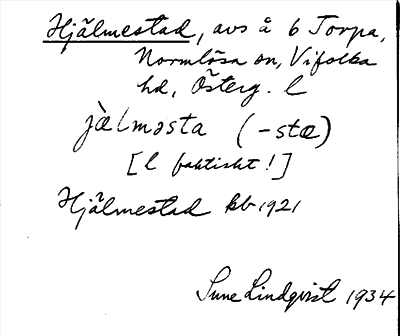 Hjälmestad, avs å 6 Torpa,
Normlösa sn, Vifolka
hd, Österg. l
jæ̀lməsta (-stæ)
[l faktiskt!]
Hjälmestad kb 1921
Sune Lindqvist 1934